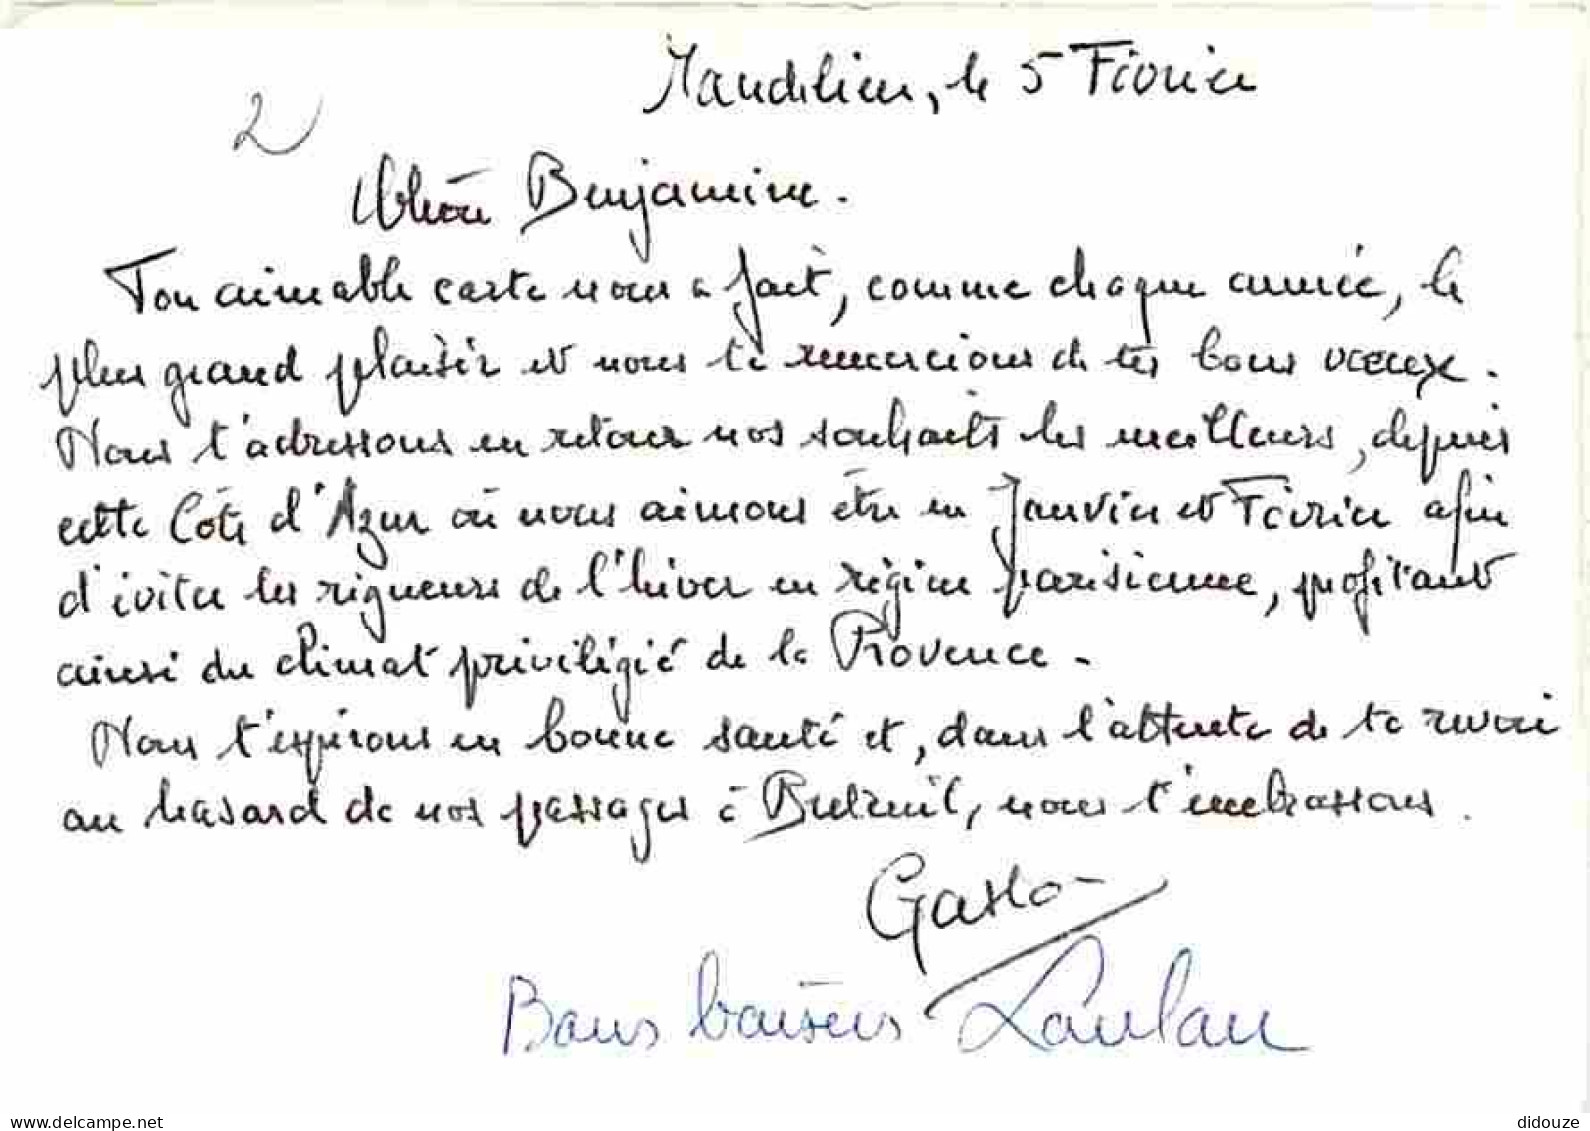 Mandelieu, le 5 Février
2
Chère Benjamine.
Ton aimable carte nous a fait, comme chaque année, le
plus grand plaisir et nous te remercions de tes bons voeux.
Nous t'adressons en retour nos souhaits les meilleurs, depuis
cette Côte d'Azur où nous aimons être en Janvier et Février afin
d'éviter les rigueurs de l'hiver en région parisienne, profitant
ainsi du climat privilégié de la Provence.
Nous t'espérons en bonne santé et, dans l'attente de te revoir
au hasard de nos passages à Breteuil, nous t'embrassons.
Gaston
Bons baisers Loulou
www.delcampe.net
didouze